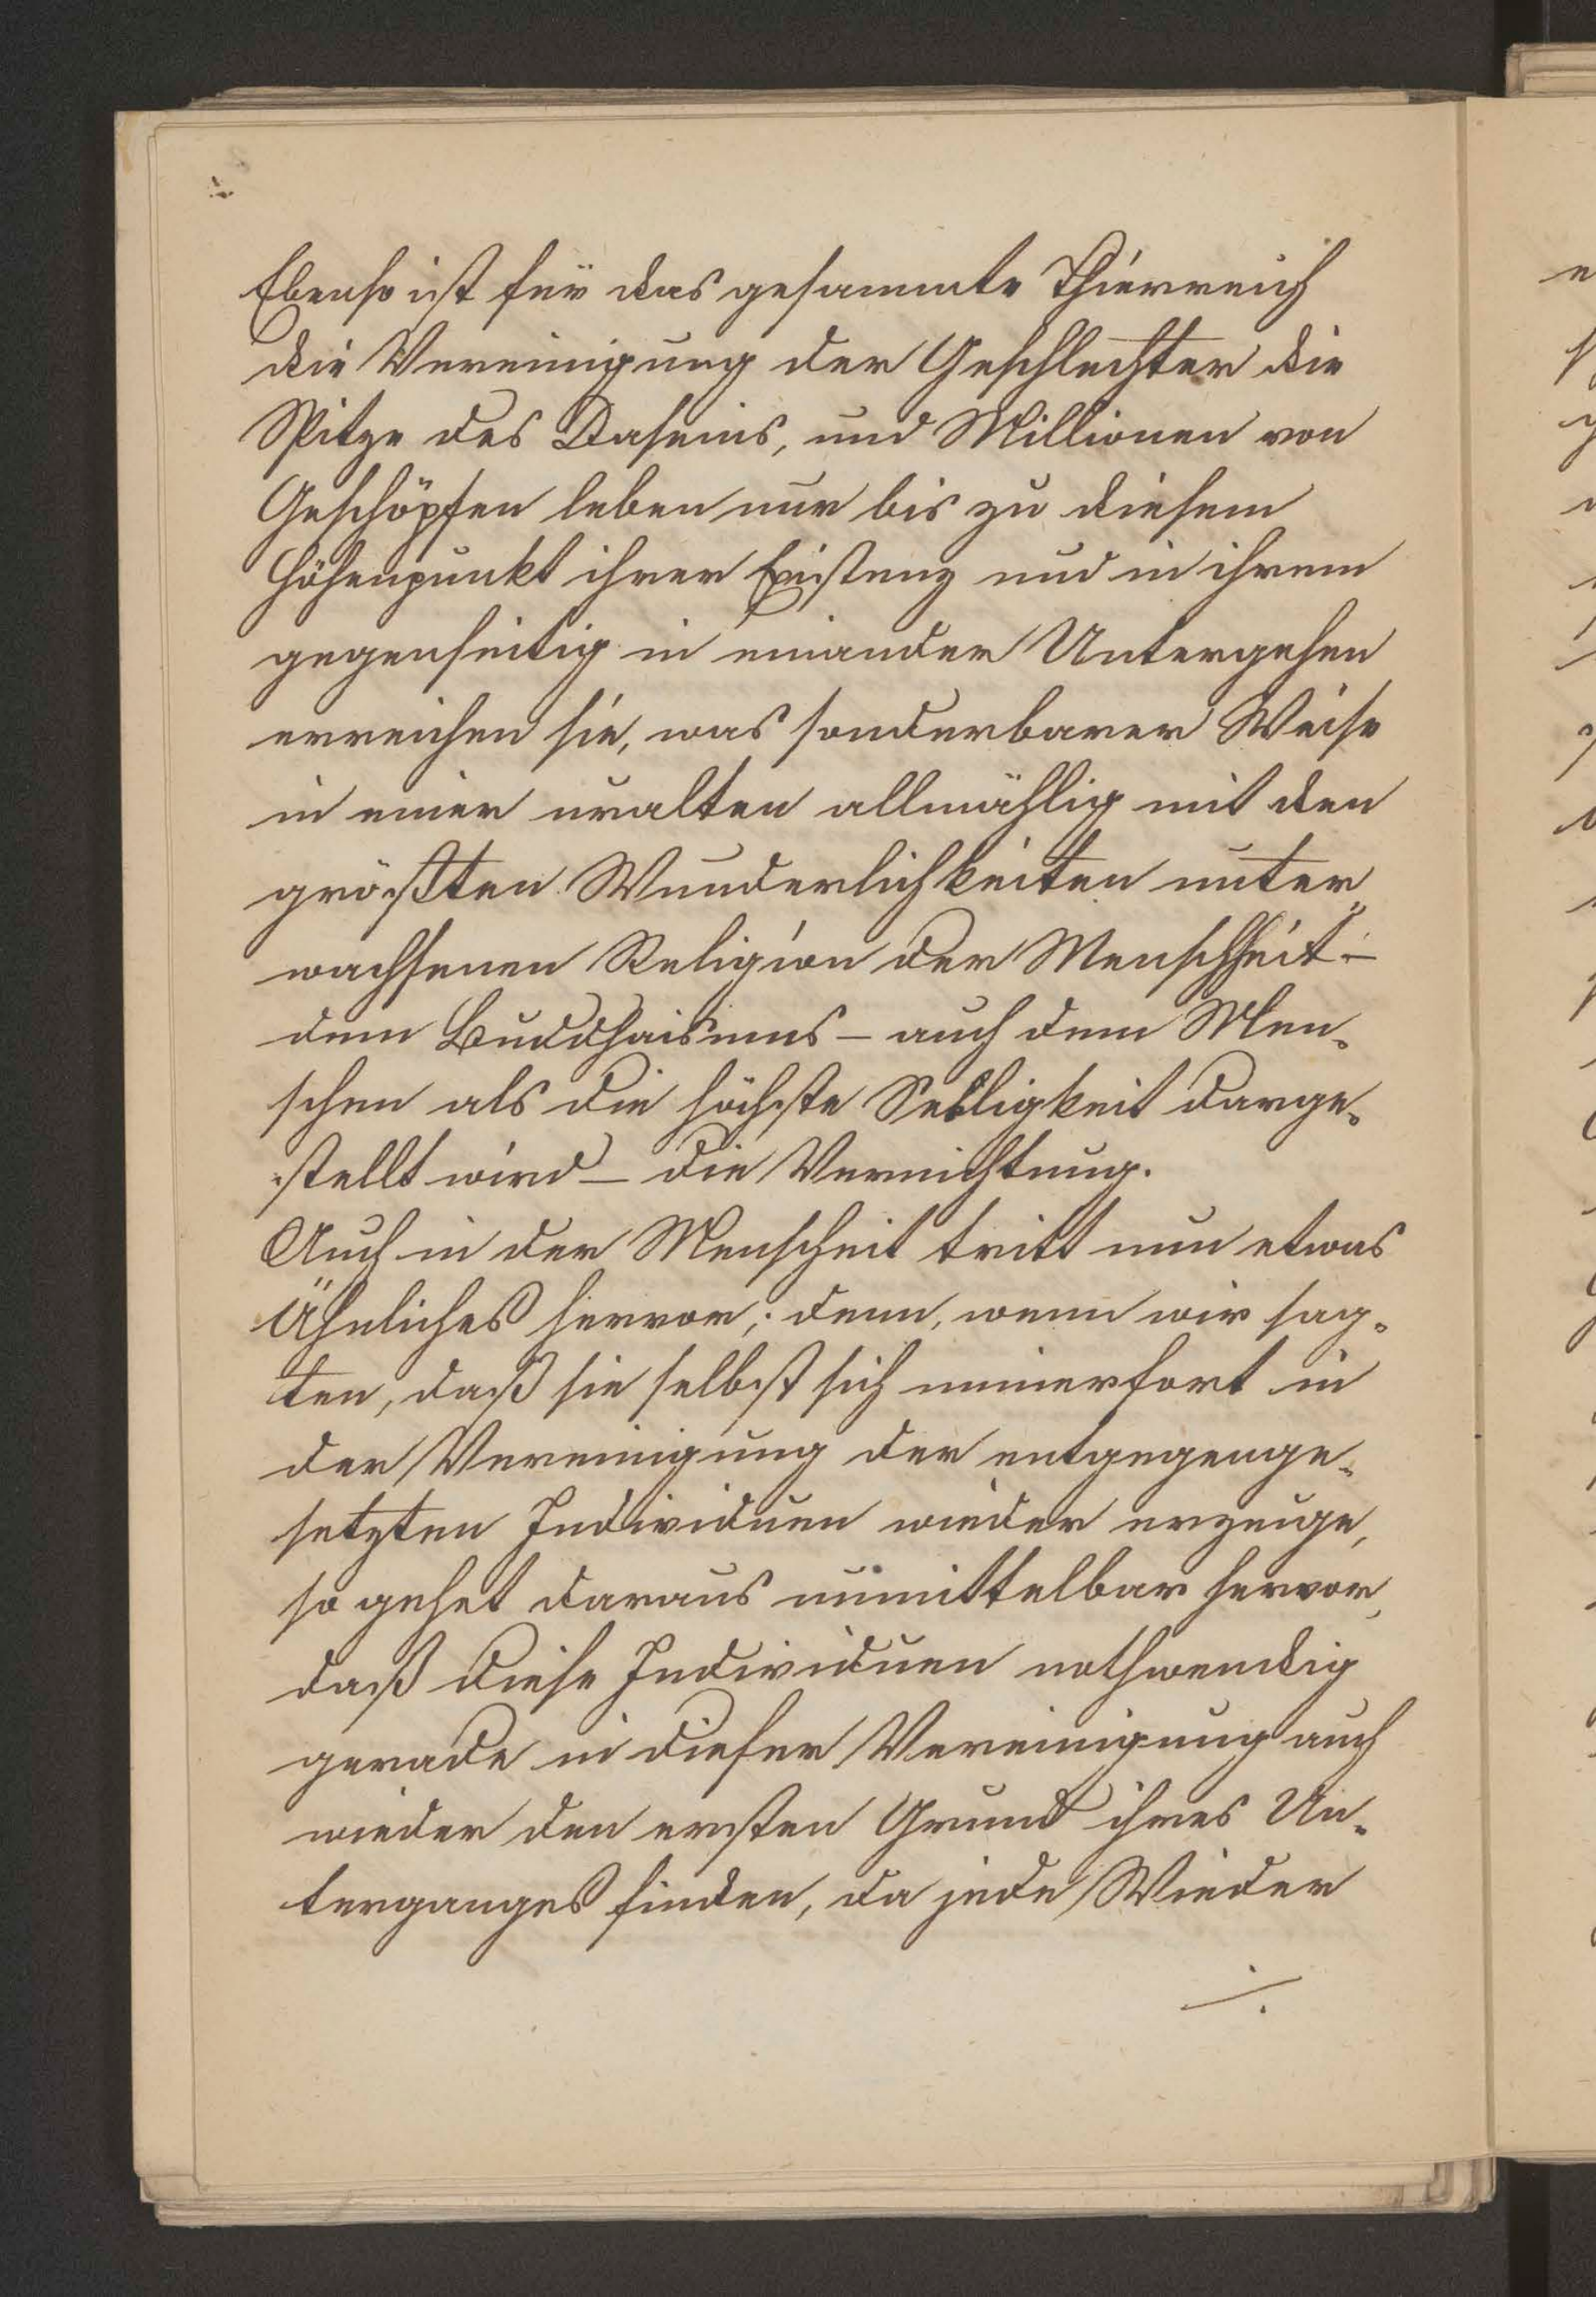 Ebenso ist für das gesammte Thierreich
die Vereinigung der Geschlechter die
Spitze des Daseins, und Millionen von
Geschöpfen leben nur bis zu diesem
Höhenpunkt ihrer Existenz und in ihrem
gegenseitig in einander Untergehen
erreichen sie, was sonderbarer Weise
in einer uralten allmählig mit den
größten Wunderlichkeiten unter„
wachsenen Religion der Menschheit –
dem Buddhaismus – auch dem Men-
schen als die höchste Seeligkeit darge-
stellt wird – die Vernichtung.
Auch in der Menscheit tritt nun etwas
Ähnliches hervor; denn, wenn wir sag-
ten, daß sie selbst sich immerfort in
der Vereinigung der entgegenge-
setzten Individuen wieder erzeuge,
so gehet daraus unmittelbar hervor,
daß diese Individuen nothwendig
gerade in dieser Vereinigung auch
wieder den ersten Grund ihres Un-
terganges finden, da jede Wieder
./.